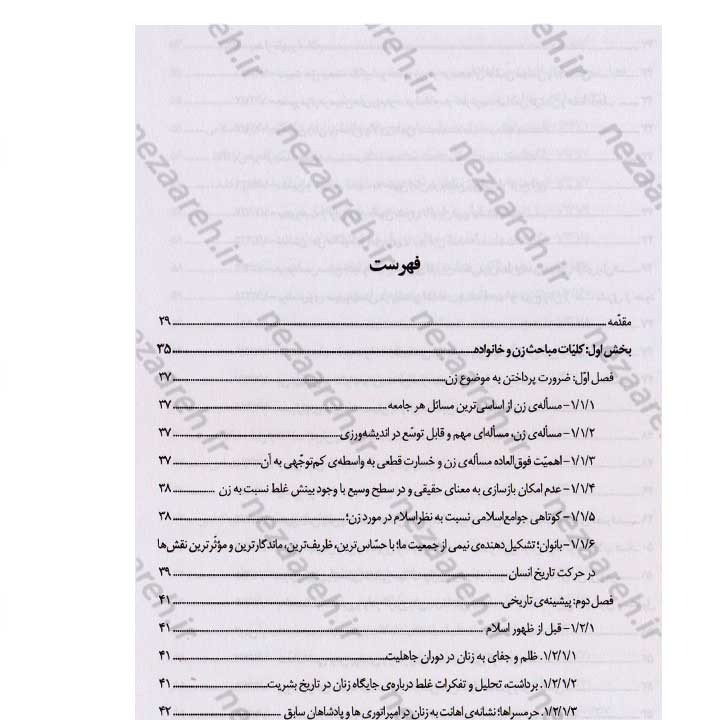 فهرست
مقدّمه ۲۹
بخش اول: کلیّات مباحث زن و خانواده ۳۵
فصل اوّل: ضرورت پرداختن به موضوع زن ۳۷
۱/۱/۱- مسأله‌ی زن از اساسی‌ترین مسائل هر جامعه ۳۷
۱/۱/۲- مسأله‌ی زن، مسأله‌ای مهم و قابل توسّع در اندیشه‌ورزی ۳۷
۱/۱/۳- اهمیّت فوق‌العاده مسأله‌ی زن و خسارت قطعی به واسطه‌ی کم‌توجّهی به آن ۳۷
۱/۱/۴- عدم امکان بازسازی به معنای حقیقی و در سطح وسیع با وجود بینش غلط نسبت به زن ۳۸
۱/۱/۵- کوتاهی جوامع‌اسلامی نسبت به نظراسلام در مورد زن؛ ۳۸
۱/۱/۶- بانوان؛ تشکیل‌دهنده‌ی نیمی از جمعیت ما؛ با حسّاس‌ترین، ظریف‌ترین، ماندگارترین و مؤثّرترین نقش‌ها
در حرکت تاریخ انسان ۳۹
فصل دوم: پیشینه‌ی تاریخی ۴۱
۱/۲/۱- قبل از ظهور اسلام ۴۱
۱/۲/۱/۱. ظلم و جفای به زنان در دوران جاهلیت ۴۱
۱/۲/۱/۲. برداشت، تحلیل و تفکرات غلط درباره‌ی جایگاه زنان در تاریخ بشریت ۴۱
۱/۲/۱/۳. حرمسراها؛ نشانه‌ی اهانت به زنان در امپراتوری ها و پادشاهان سابق ۴۲
nezaareh.ir